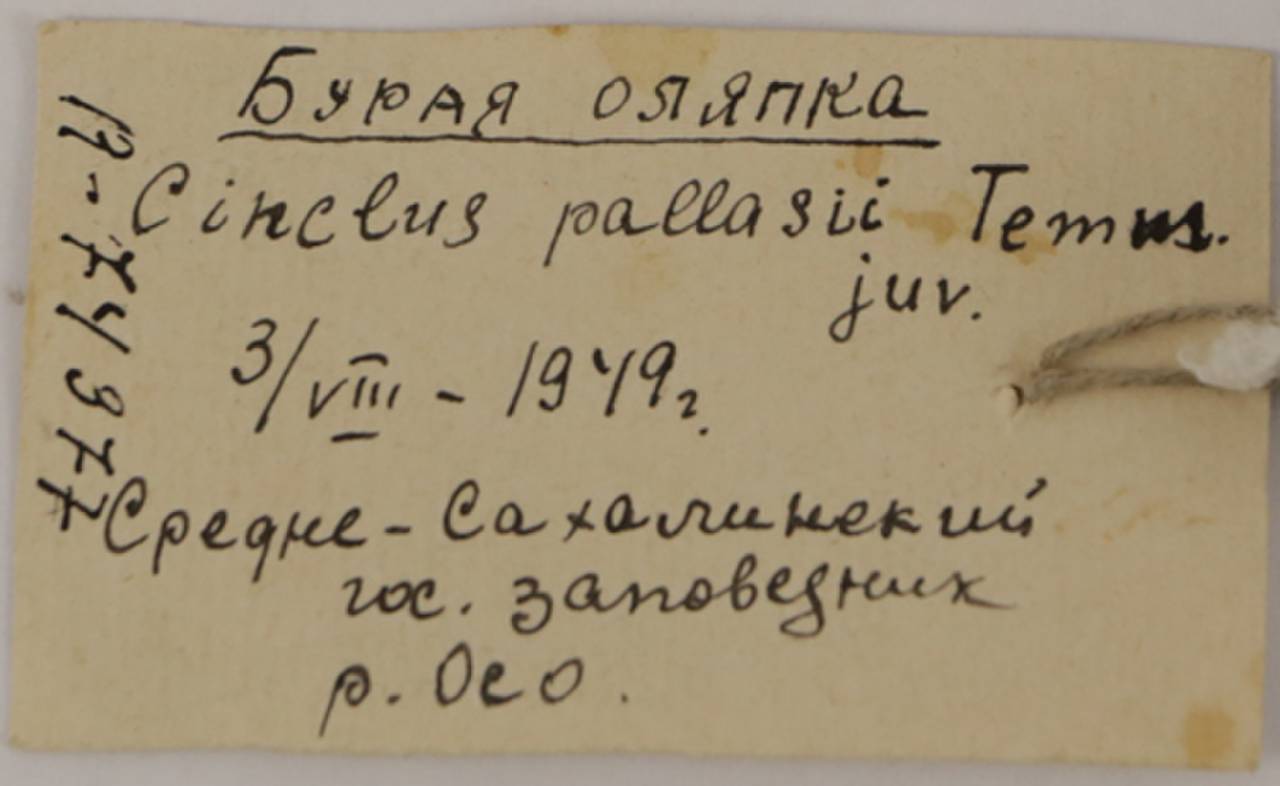 Бурая оляпка
Cinclus pallasii Temm.
juv.
3/VIII - 1949г.
Средне-Сахалинский
гос. заповедник
р. Осо.